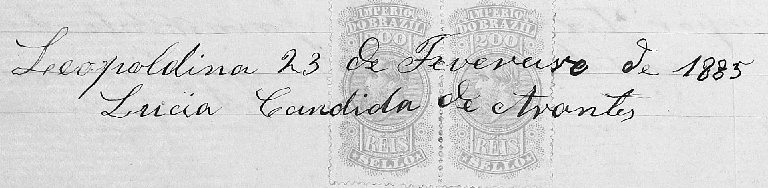 IMPERIO IMPERIO
DO BRAZIL DO BRAZIL
200 200
Leopoldina 23 de Fevereiro de 1885
Lucia Candida de Arantes
REIS REIS
SELLO SELLO